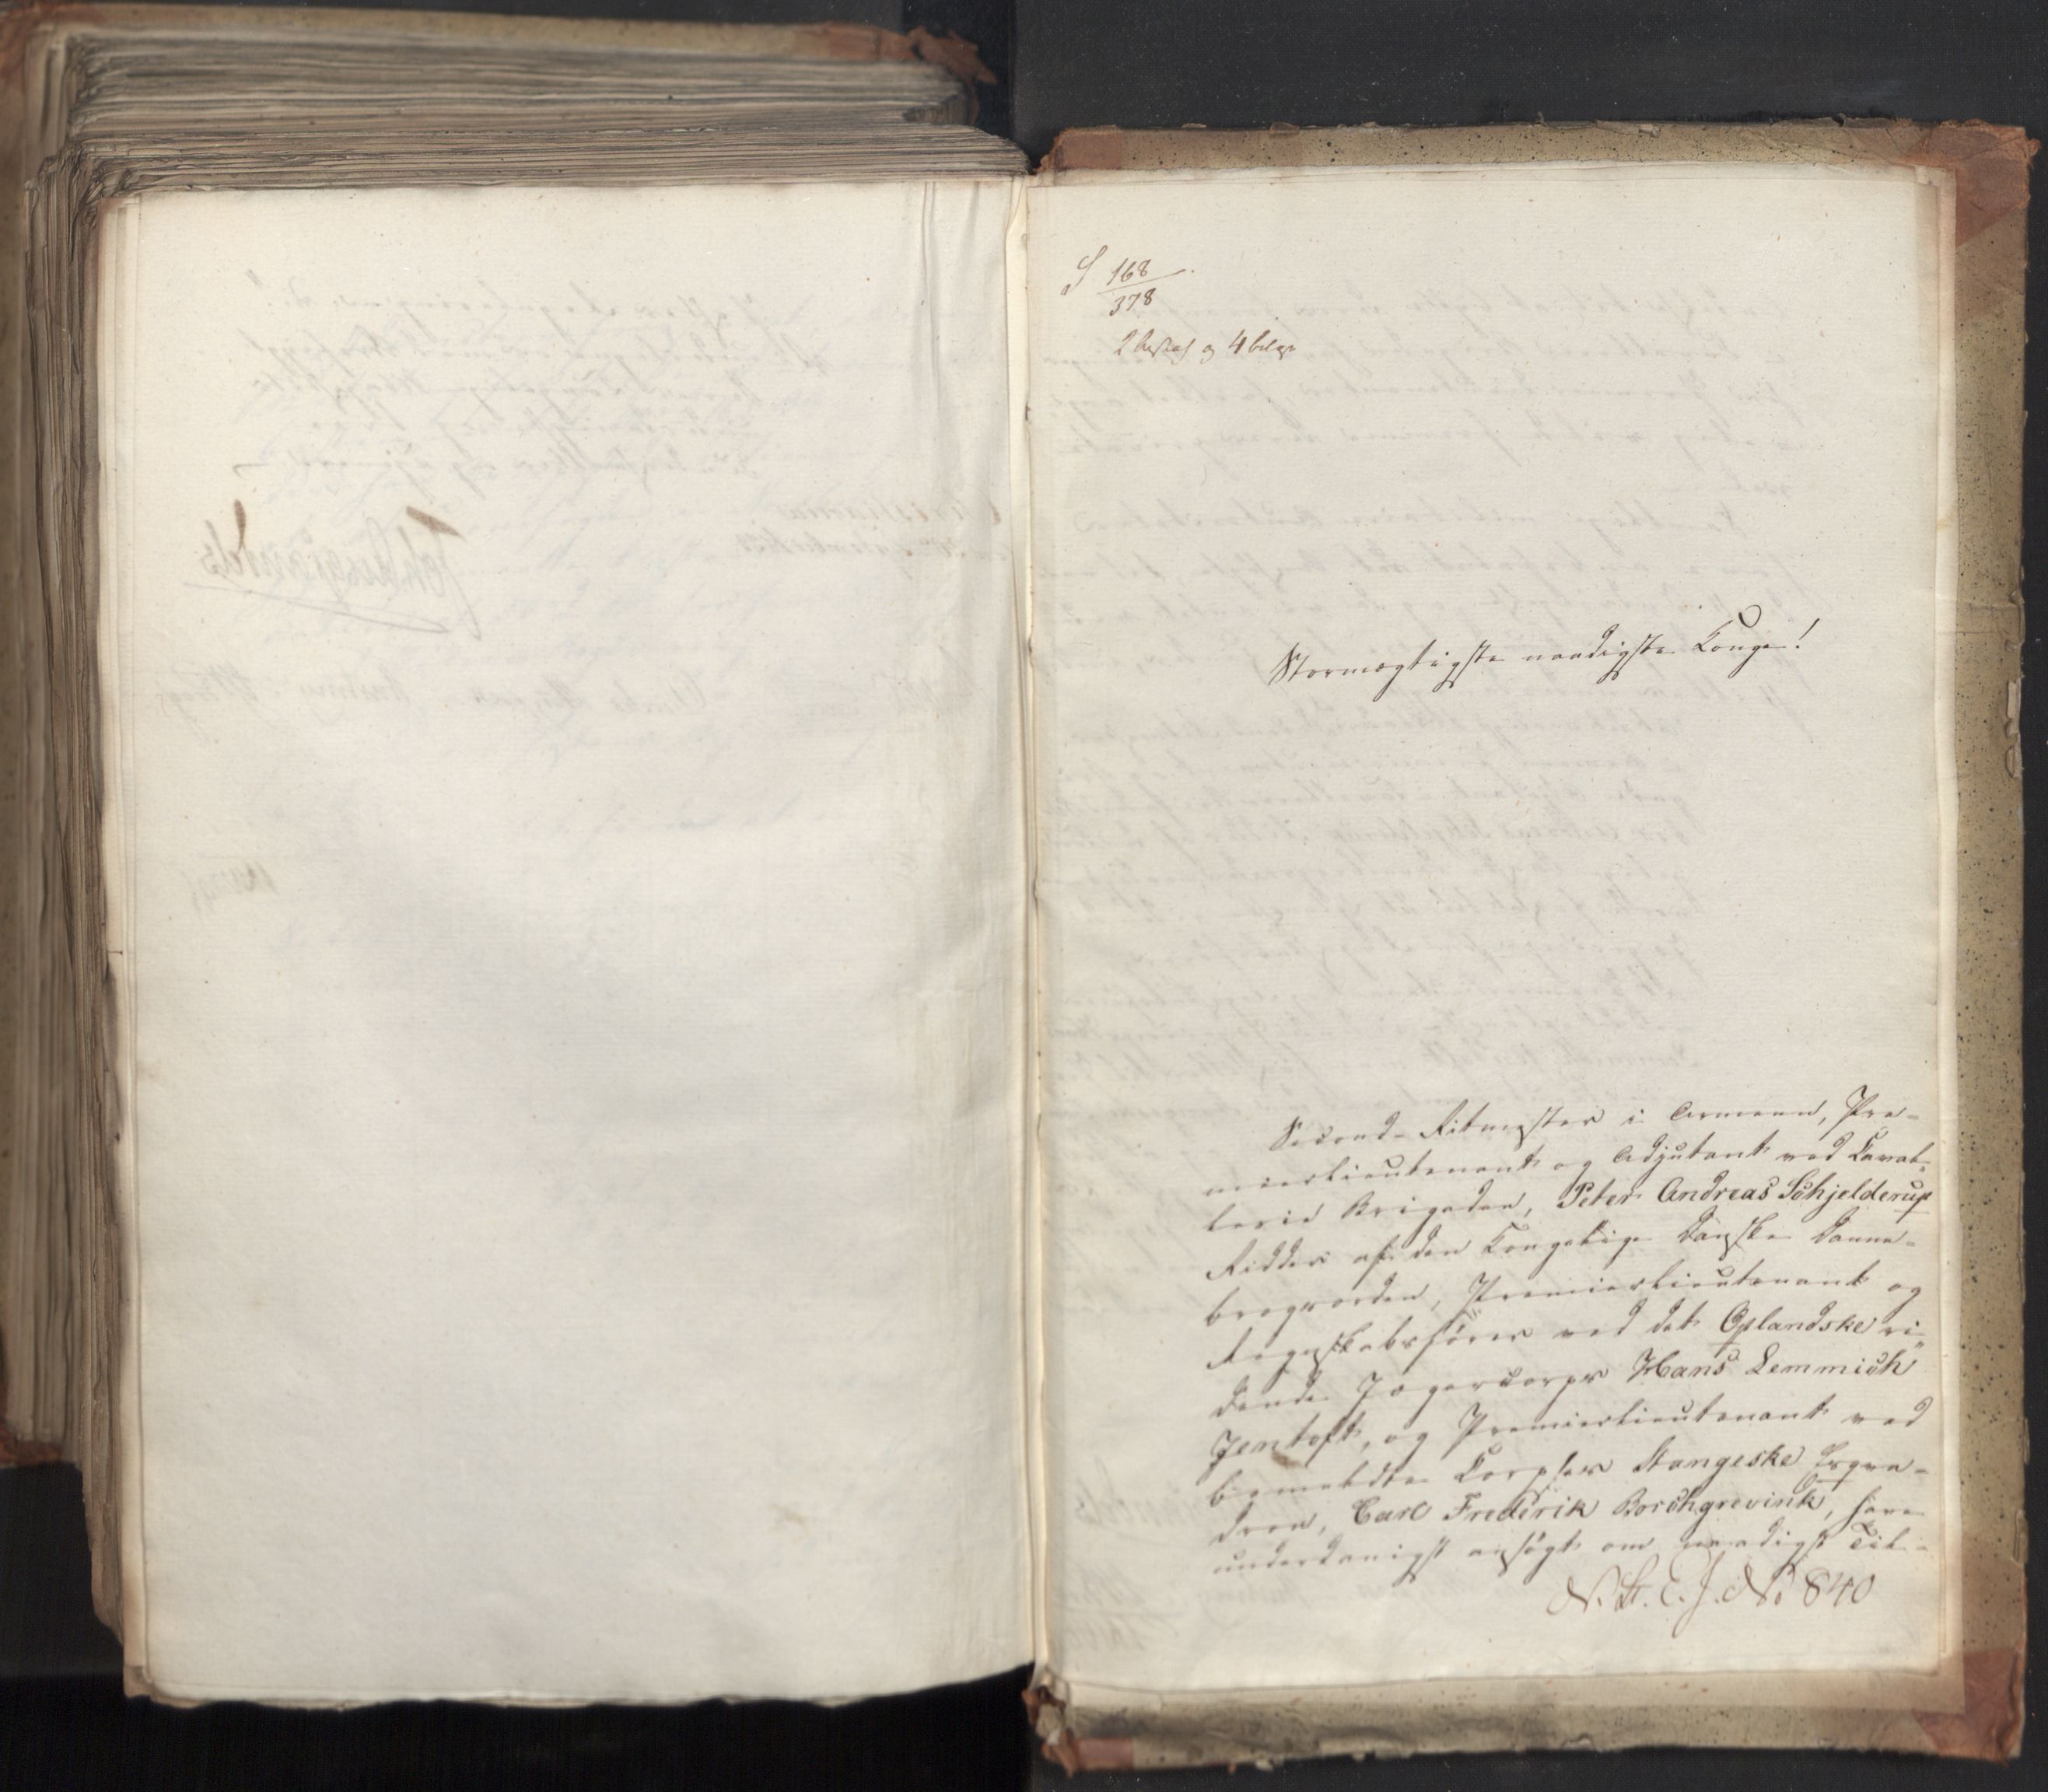 S 168/378
2 og 4 bilage
Stormægtigste naadigste Konge!
Second-Ritmester i Armeen, Pre-
mierlieutenant og Adjutant ved Caval-
lerie Brigaden, Peter Andreas Schjelderup
Ridder af den Kongelige Danske Danne-
brogsorden, Premierlieutenant og
Regnskabsfører ved det Oplandske ri-
dende Jægercorps Hans Lemmich
Jentoft, og Premierlieutenant ved
bemeldte Corpses Stangeske Esqva-
dron, Carl Frederik Borchgrevink, have
underdanigst ansøgt om naadigst Til-
N. St. E. J. No 840